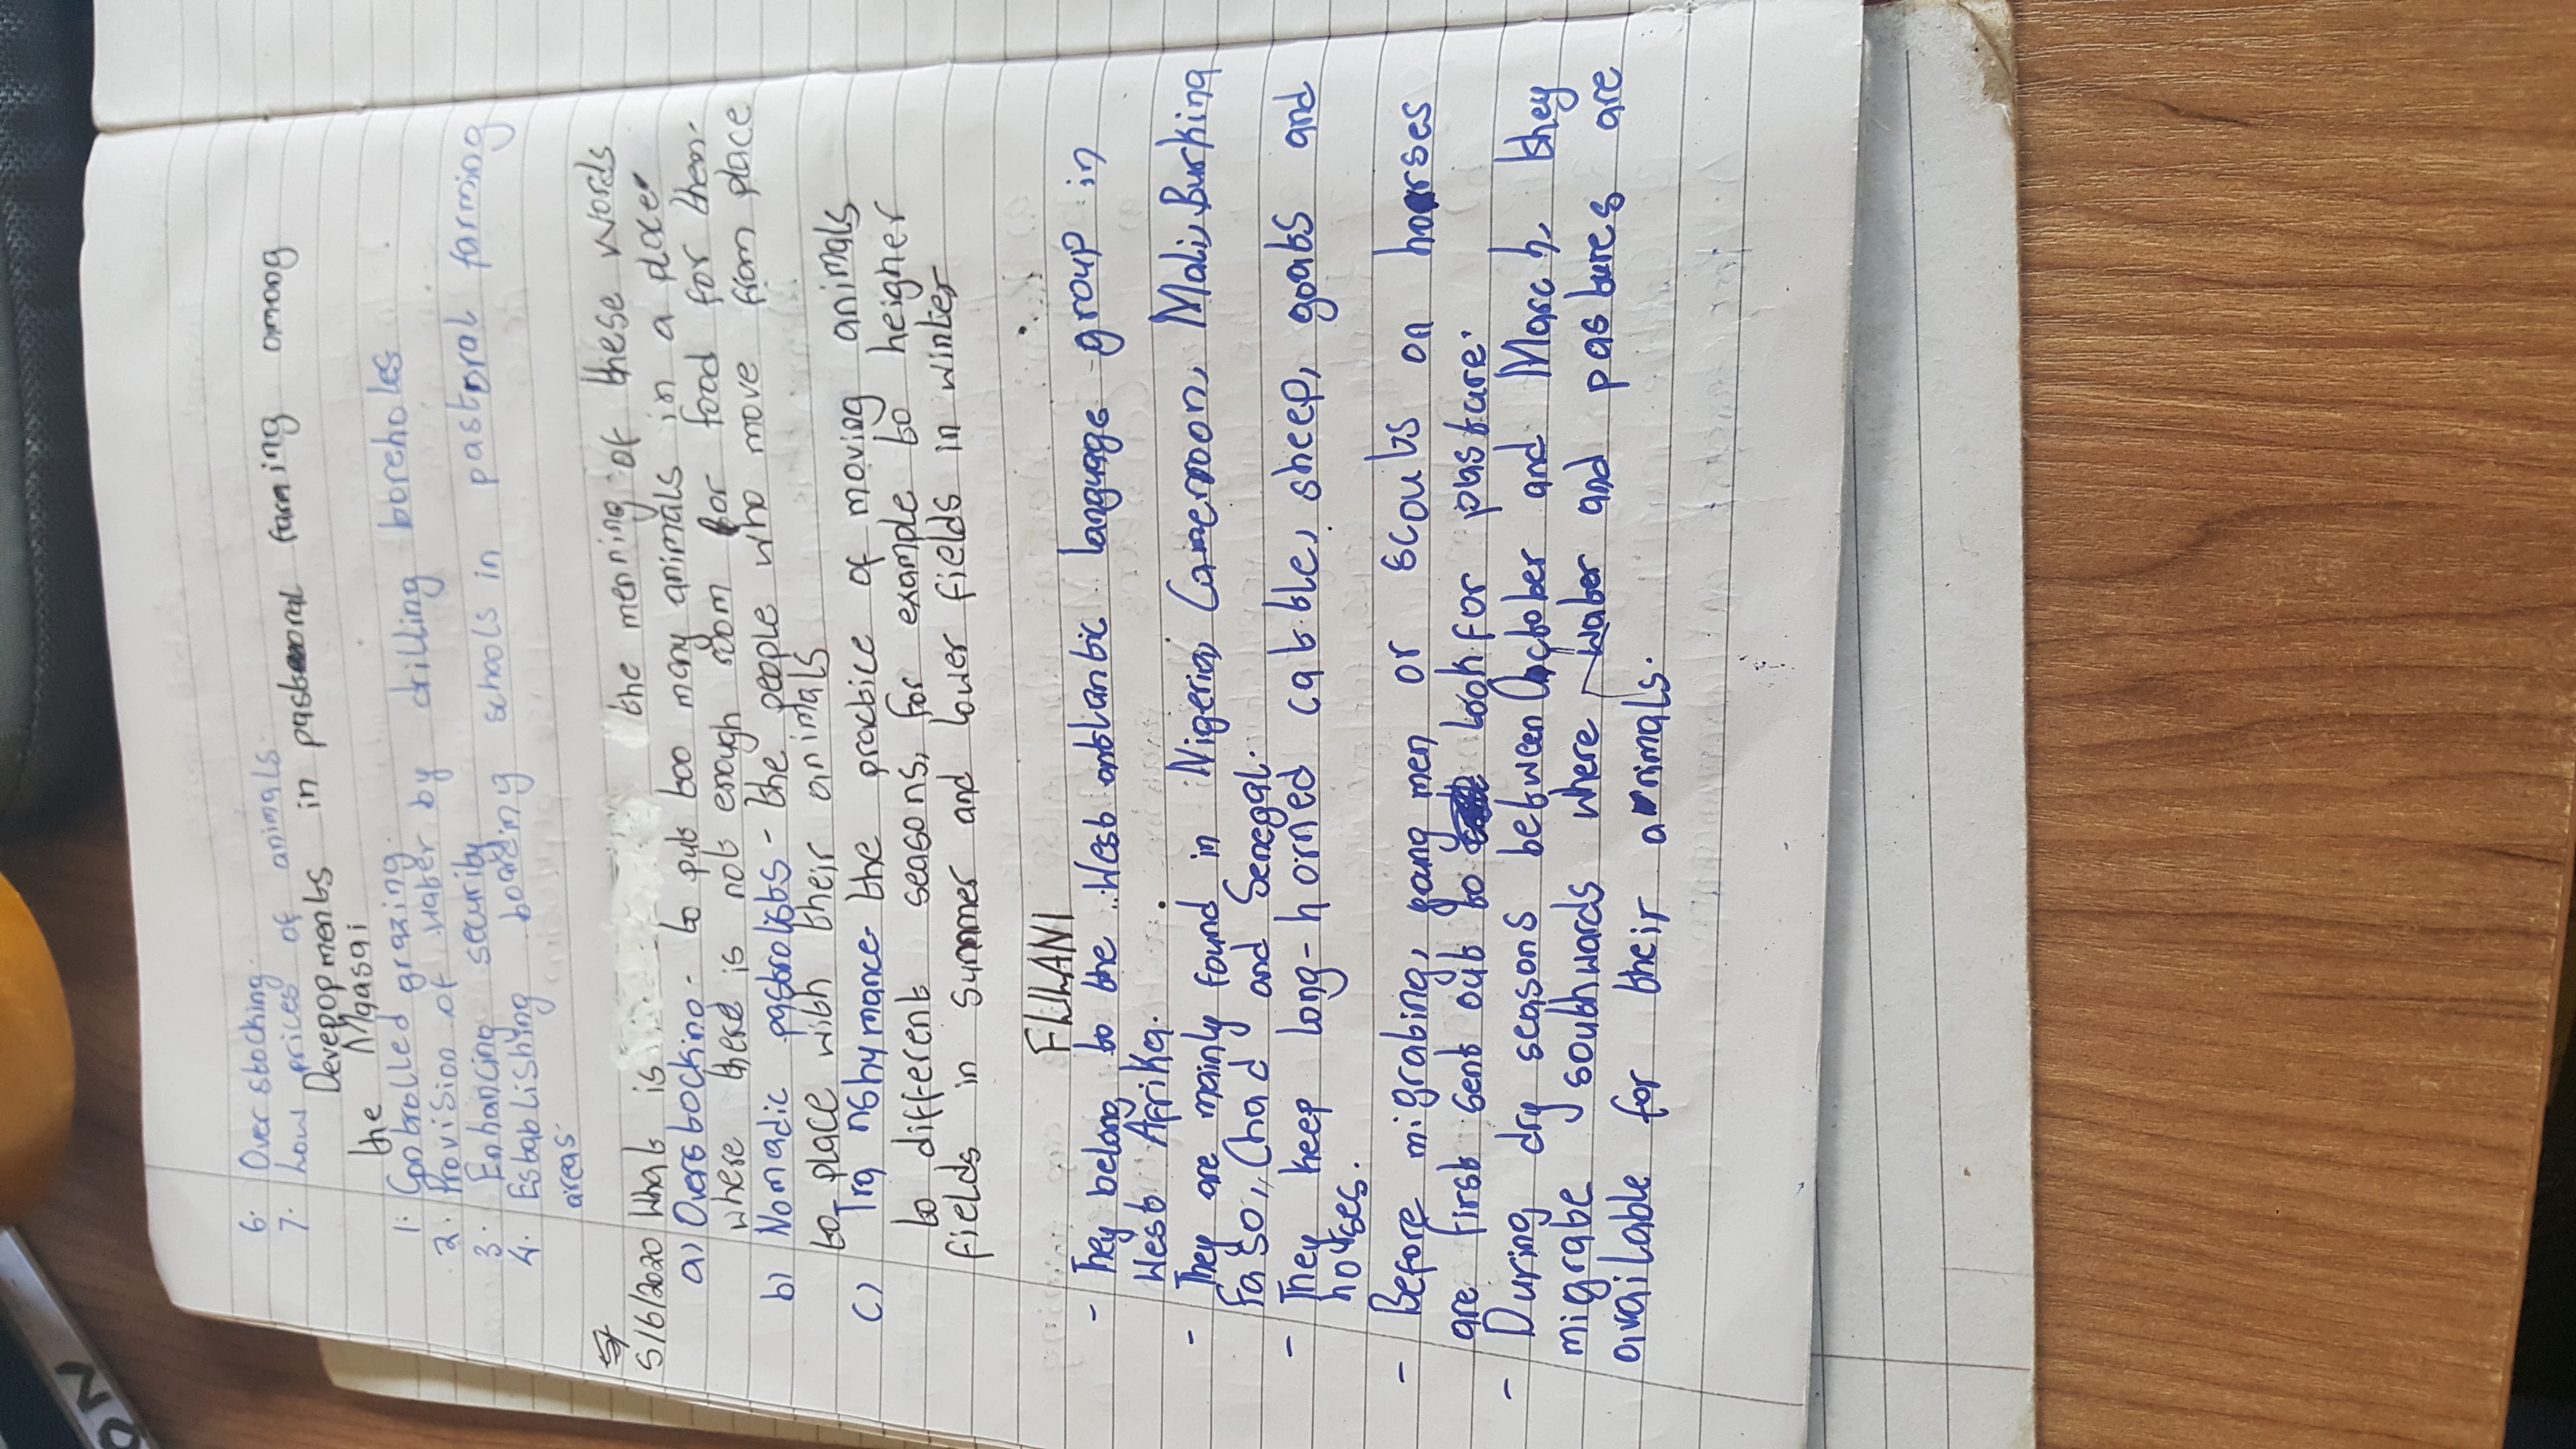 ON
6. Over stocking.
7. Low prices of animals.
Devepopments in pastoral faming among
the Maasai
1. Controlled grazing.
2. Provision of water by drilling boreholes
3. Enhancing security
4. Establishing boarding schools in pastoral farming
areas.
5/6/2020 What is the menning of these words
a) Overstocking - to put too many animals in a place
where there is not enough room for food for them.
b) Nomadic pastrolists - the people who move from place
to place with their animals
c) Transhymance - the practice of moving animals
to different seasons, for example to heigher
fields in summer and lower fields in winter
FULANI
- They belong to the West antlantic language group in
West Afrika.
- They are mainly found in Nigeria, Cameroon, Mali, Burkina
Faso, Chad and Senegal.
- They keep long-horned cattle, sheep, goats and
horses.
- Before migrating, yang men or scouts on hoarses
are first sent out to look for pasture.
- During dry seasons between October and March they
migrate southwards where water and pastures are
available for their animals.